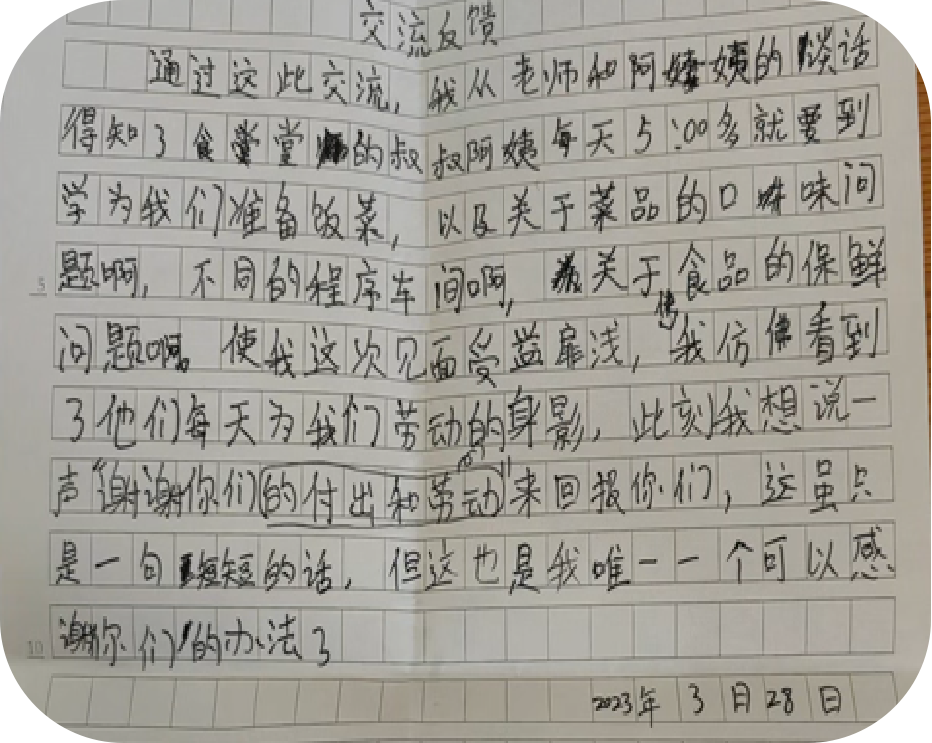 交流反馈
通过这此交流,我从老师和阿姨的谈话
得知了食堂的叔叔阿姨每天5:00多就要到
学为我们准备饭菜,以及关于菜品的口味问
题啊,不同的程序车间啊,关于食品的保鲜
问题啊。使我这次见面受益扉浅,使我仿佛看到
了他们每天为我们劳动的身影,此刻我想说一
声“谢谢你们的付出和劳动”来回报你们,这虽只
是一句短短的话,但这也是我唯一一个可以感
谢你们的办法了
2023年3月28日
5
10